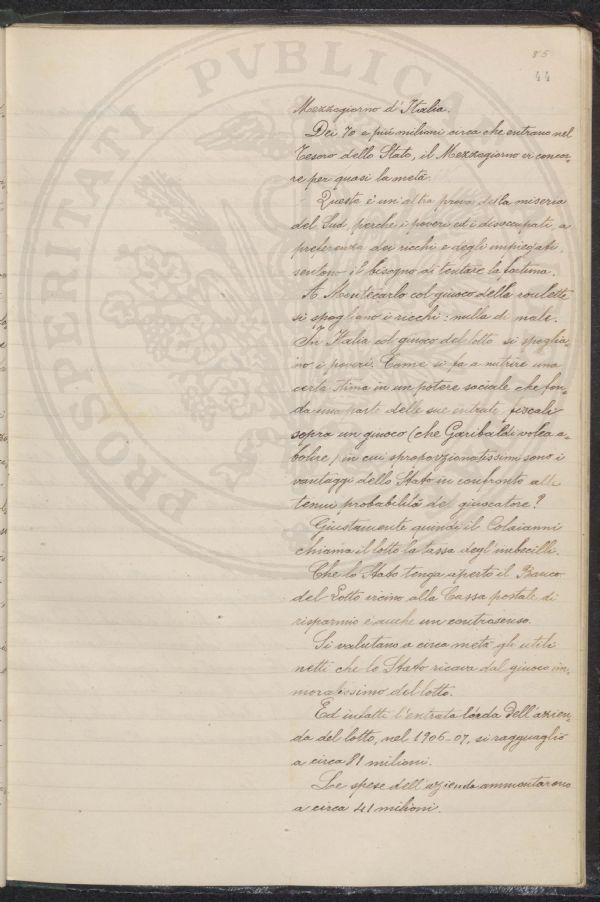 85
44
Mezzogiorno d'Italia.
Dei 70 e più milioni circa che entrano nel
Tesoro dello Stato, il Mezzogiorno vi concor-
re per quasi la metà.
Questa è un'altra prova della miseria
del Sud, perchè i poveri ed i disoccupati, a
preferenza dei ricchi e degli impiegati,
sentono il bisogno di tentare la fortuna.
A Montecarlo col giuoco della roulette
si spogliano i ricchi: nulla di male.
In Italia col giuoco del lotto si spoglia-
no i poveri. Come si fa a nutrire una
certa stima in un potere sociale che fon-
da una parte delle sue entrate fiscali
sopra un giuoco (che Garibaldi volea a-
bolire) in cui sproporzionatissimi sono i
vantaggi dello Stato in confronto alle
tenui probabilità del giuocatore?
Giustamente quindi il Colaianni
chiama il lotto la tassa degl'imbecilli.
Che lo Stato tenga aperto il Banco
del Lotto vicino alla Cassa postale di
risparmio è anche un controsenso.
Si valutano a circa metà gli utili
netti che lo Stato ricava dal giuoco im-
moralissimo del lotto.
Ed infatti l'entrata lorda dell'azien-
da del lotto, nel 1906-07, si ragguagliò
a circa 81 milioni.
Le spese dell'azienda ammontarono
a circa 41 milioni.
PROSPERITATI PVBLICAE